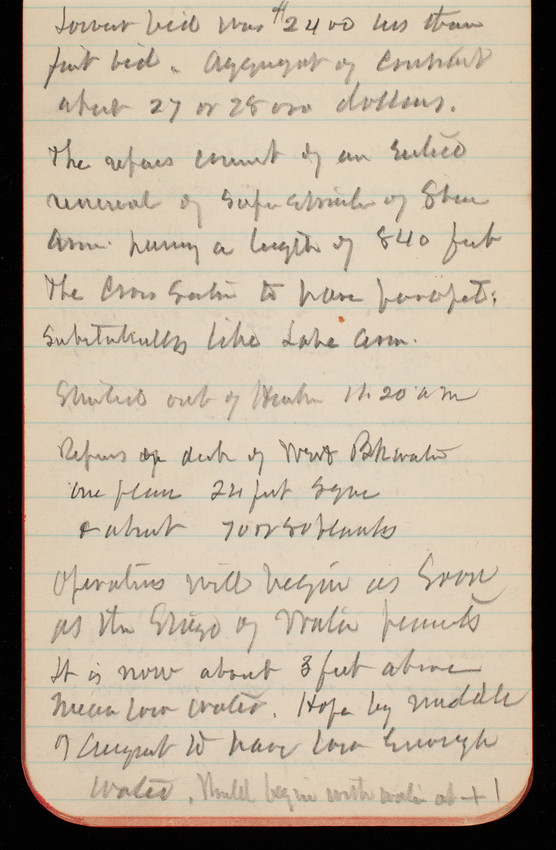 Lowest bid was $2400 less than
first bid. Aggregate of contract
about 27 or 28000 dollars.
The repairs consist of an entire
renewal of superstructure of Shore
arm having a length of 840 feet
The cross section to have parapet
substantially like Lake arm.
Started out of 11.20 am
Repairs deck of West Bkwater
one place 24 feet square
& about 70 or 80 planks
Operations will begin as soon
as the stage of water permits
It is now about 3 feet above
mean low water. Hope by middle
of August to have low enough
water. Would begin with water at +1